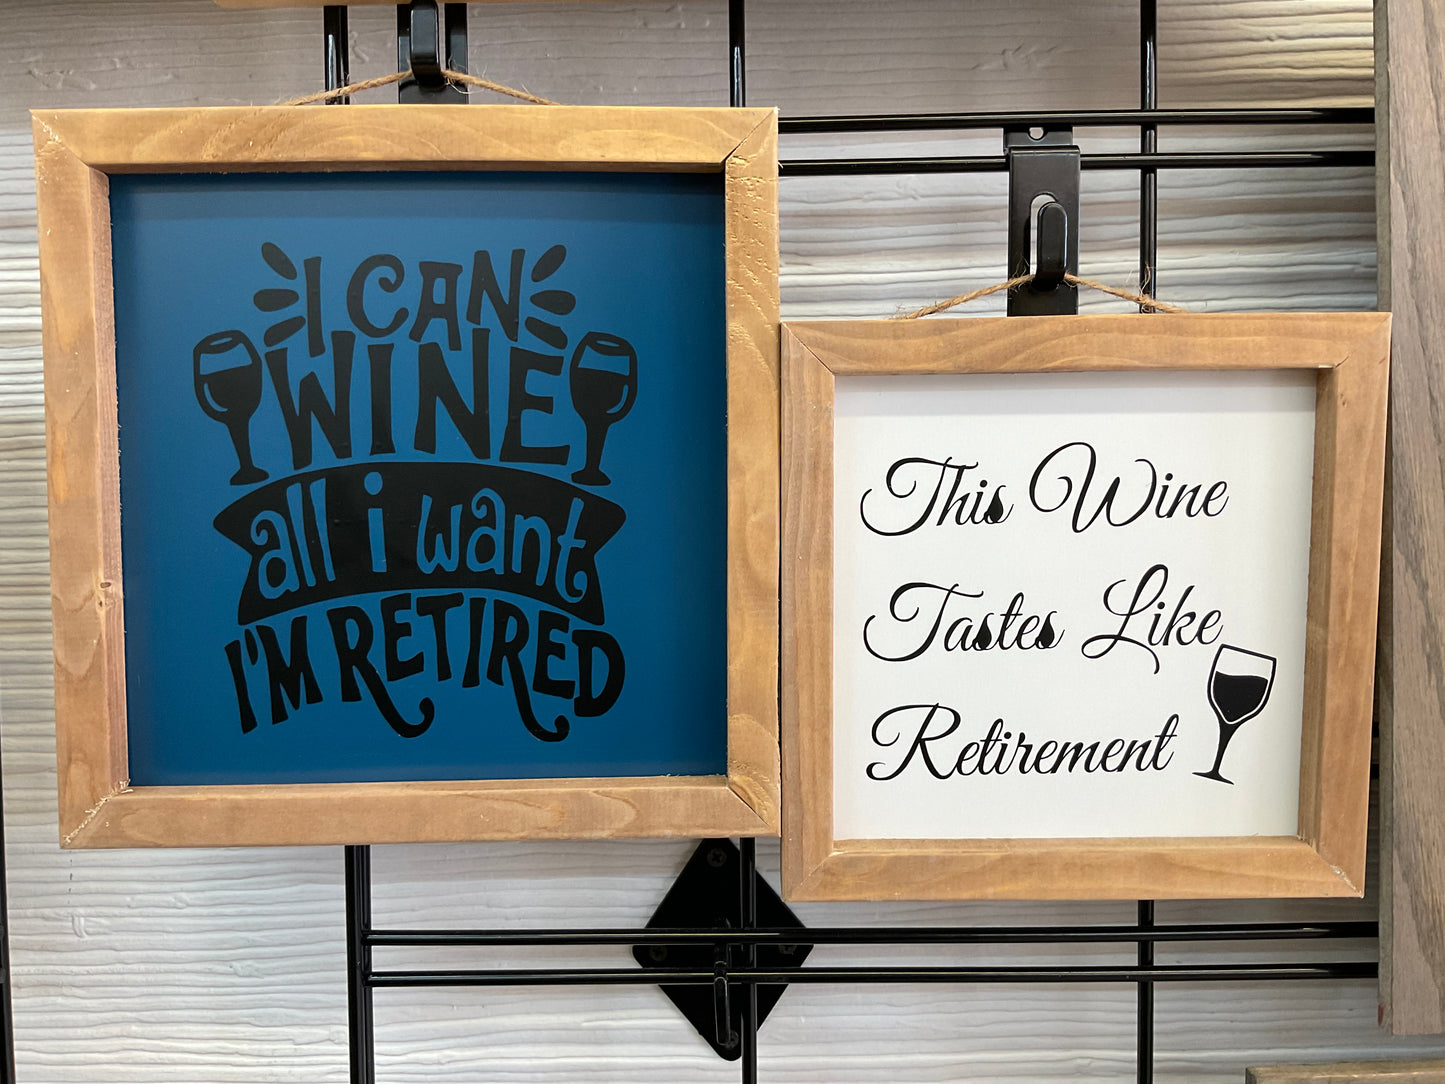 I CAN
WINE
all i want
I'M RETIRED
This Wine
Tastes Like
Retirement